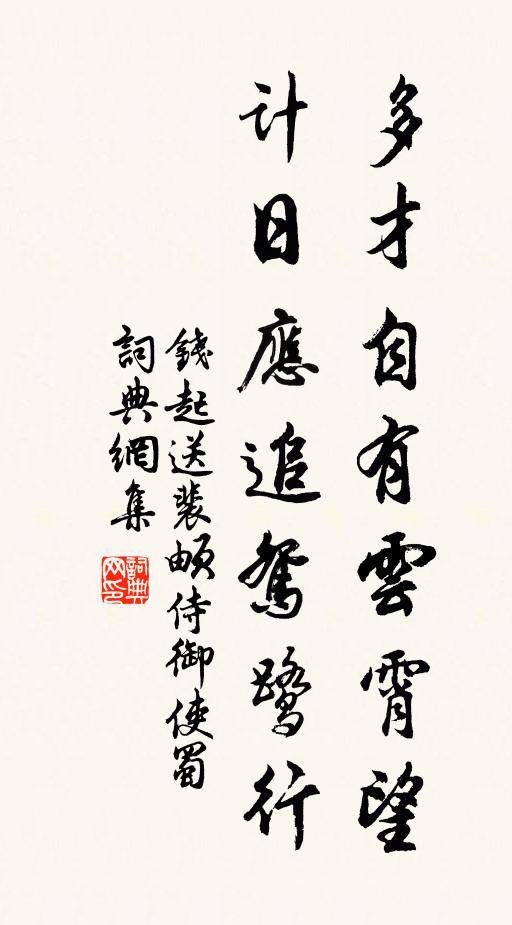 多才自有雲霄望
計日應追鴛鷺行
錢起送裴頔侍御使蜀
詞典網集
詞典網印